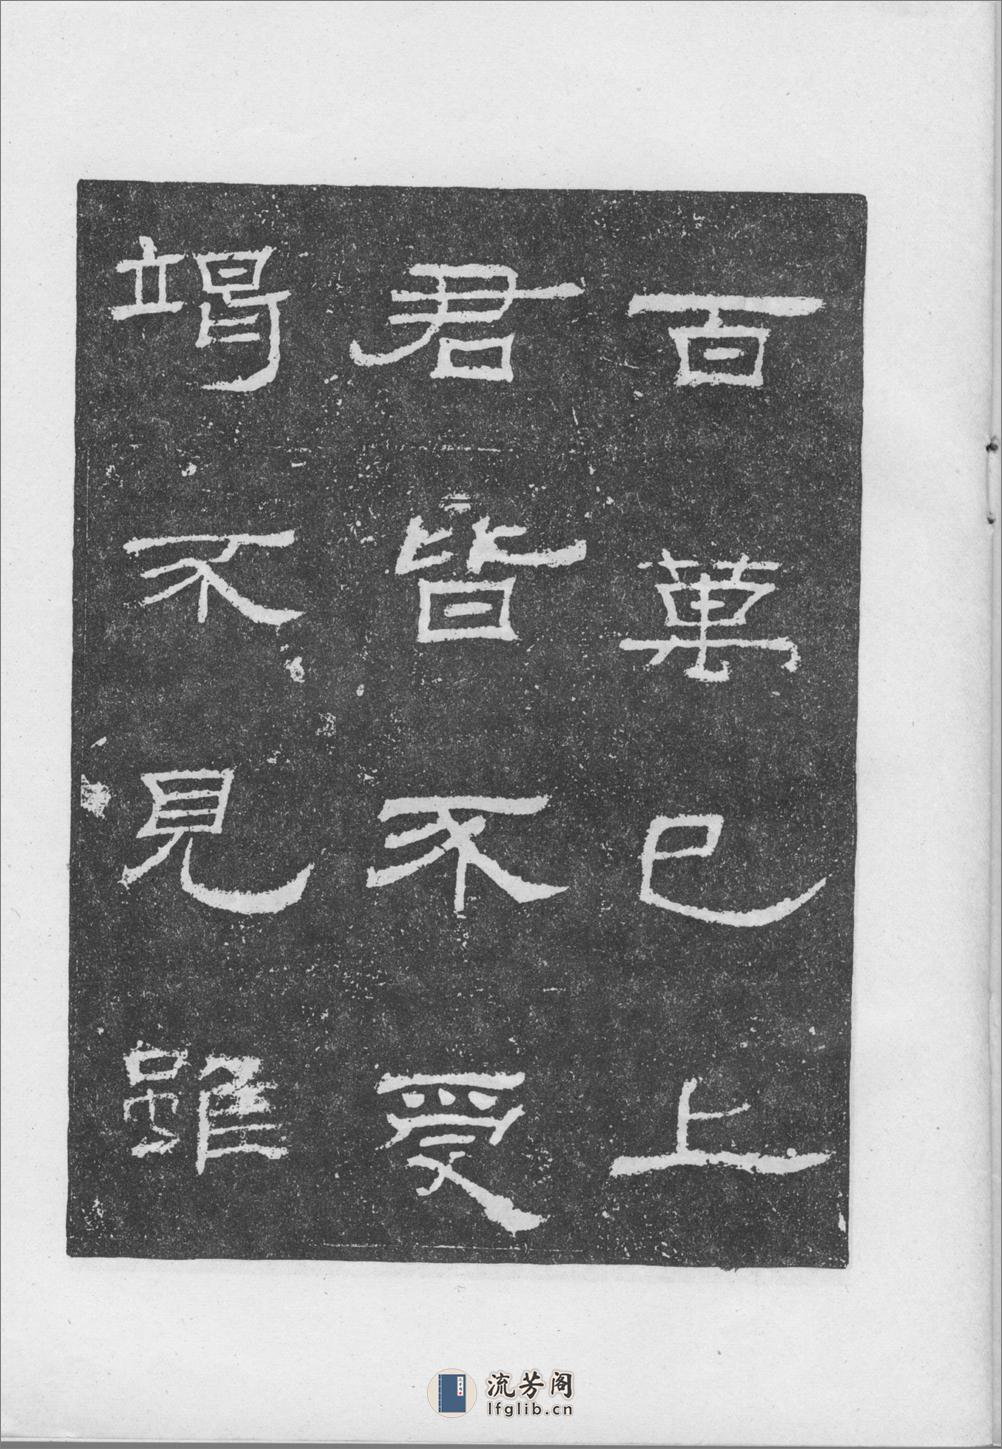 百萬已上
君皆不受
竭不見雖
流芳阁
lfglib.cn